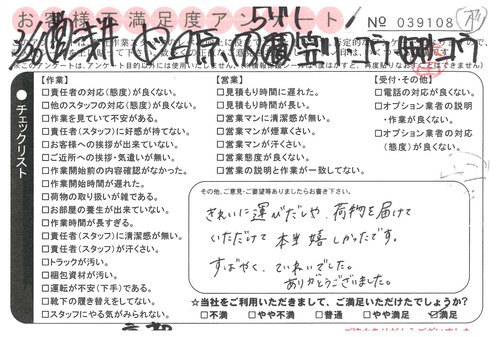 お客様不満足度アンケート
№ 039108
チェックリスト
【作業】
□責任者の対応(態度)が良くない。
□他のスタッフの対応(態度)が良くない。
□作業を見ていて不安がある。
□責任者(スタッフ)に好感が持てない。
□お客様への挨拶が出来ていない。
□ご近所への挨拶・気遣いが無い。
□作業開始前の内容確認がなかった。
□作業開始時間が遅れた。
□荷物の取り扱いが雑である。
□お部屋の養生が出来ていない。
□作業時間が長すぎる。
□責任者(スタッフ)に清潔感が無い。
□責任者(スタッフ)が汗くさい。
□トラックが汚い。
□梱包資材が汚い。
□運転が不安(下手)である。
□靴下の履き替えをしてない。
□スタッフにやる気がみられない。
【営業】
□見積もり時間に遅れた。
□見積もり時間が長い。
□営業マンに清潔感が無い。
□営業マンが煙草くさい。
□営業マンが汗くさい。
□営業態度が良くない。
□営業の説明と作業が一致してない。
【受付・その他】
□電話の対応が良くない。
□オプション業者の説明
・作業が良くない。
□オプション業者の対応
(態度)が良くない。
その他、ご意見・ご要望等ありましたらお書き下さい。
きれいに運びだしや、荷物を届けて
いただけて本当嬉しかったです。
すばやく、ていねいでした。
ありがとうございました。
☆当社をご利用いただきまして、ご満足いただけたでしょうか?
□不満 □やや不満 □普通 □やや満足 ☑満足